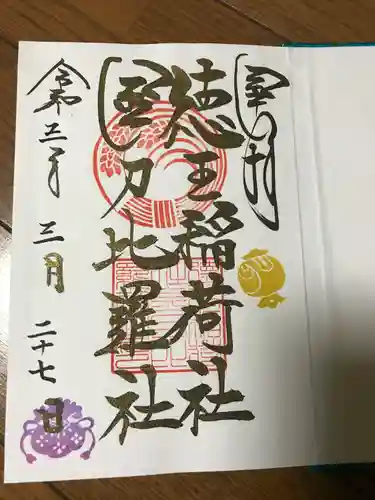 徳王稲荷社
金刀比羅社
令和三年
三月
二十七日